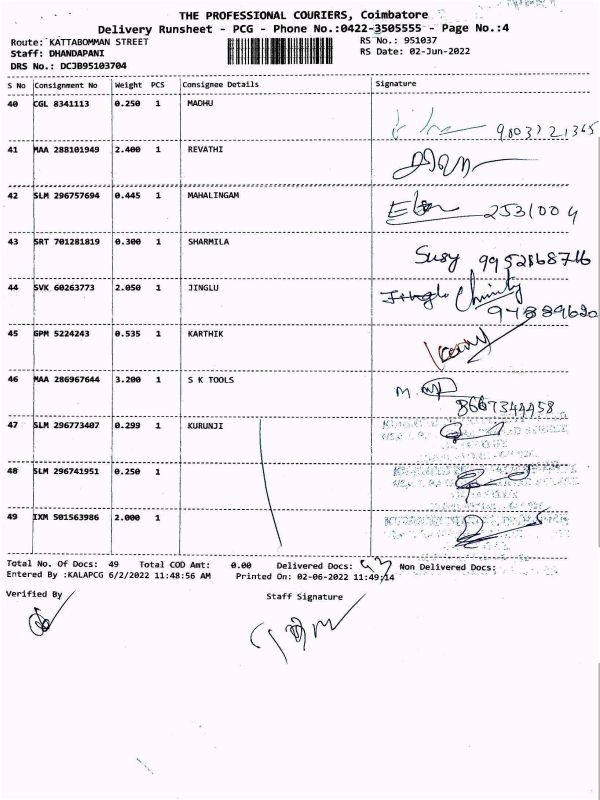 THE PROFESSIONAL COURIERS, Coimbatore
Delivery Runsheet - PCG - Phone No.:0422-3505555 - Page No.:4
Route: KATTABOMMAN STREET RS No.: 951037
Staff: DHANDAPANI RS Date: 02-Jun-2022
DRS No.: DCJB95103704
S No Consignment No Weight PCS Consignee Details Signature
40 CGL 8341113 0.250 1 MADHU
41 MAA 288101949 2.400 1 REVATHI
42 SLM 296757694 0.445 1 MAHALINGAM
2531004
43 SRT 701281819 0.300 1 SHARMILA
Susy 9952868716
44 SVK 60263773 2.050 1 JINGLU
45 GPM 5224243 0.535 1 KARTHIK
46 MAA 286967644 3.200 1 S K TOOLS
8667344458
47 SLM 296773407 0.299 1 KURUNJI
48 SLM 296741951 0.250 1
49 IXM 501563986 2.000 1
Total No. Of Docs: 49 Total COD Amt: 0.00 Delivered Docs: Non Delivered Docs:
Entered By :KALAPCG 6/2/2022 11:48:56 AM Printed On: 02-06-2022 11:49:14
Verified By Staff Signature